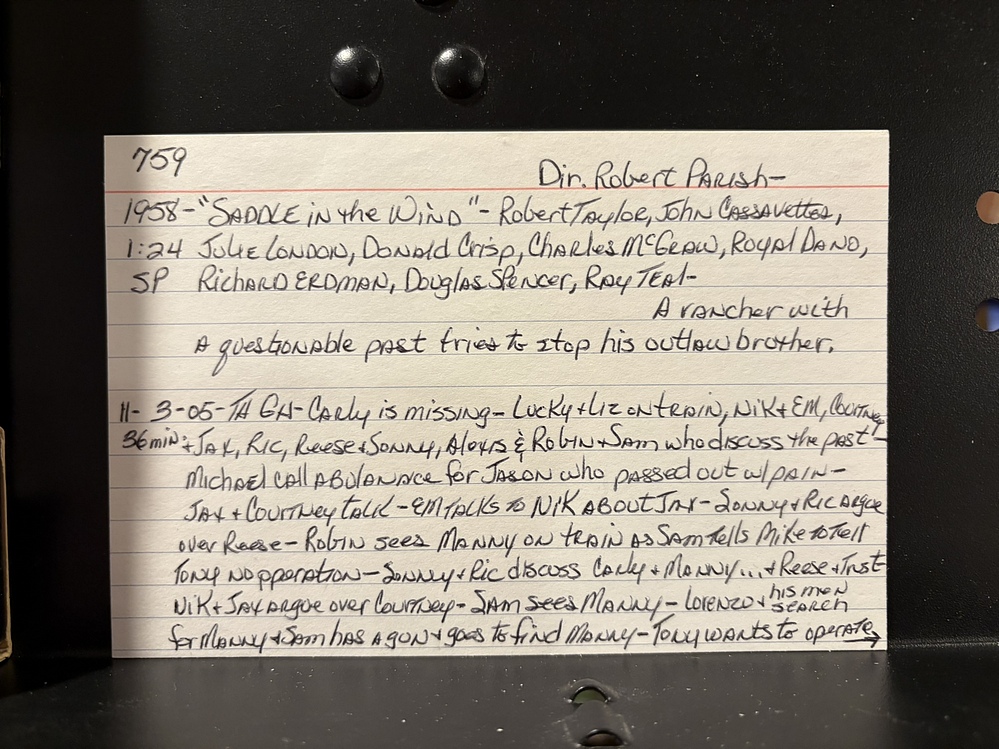 759
Dir. Robert PARISH-
1958-"SADDLE in the WIND"- Robert Taylor, John CASSAVETTES,
1:24 JULIE LONDON, DONALD Crisp, CHARLES McGRAW, ROYAL DANO,
SP RICHARD ERDMAN, Douglas SPENCER, RAY TEAL-
A rancher with
A questionable past tries to stop his outlaw brother.
11- 3-05-TH GH-CARLY is missing- Lucky+Liz on train, NIK+EM, COURTNEY
36min: +JAX, RIC, Reese+Sonny, Alexis & Robin+SAM who discuss the past-
Michael call ABULANACE for JASON who passed out w/PAIN-
JAX + COURTNEY talk-EM TALKS to NIK ABOUT JAX- SONNY+RIC Argue
over Reese- Robin sees MANNY on train as SAM tells Mike to tell
Tony no pperation- SONNY+Ric discuss Carly + MANNY...+ Reese+Trust
NiK+JAX argue over Courtney- SAM sees MANNY- LORENZO + his men
SEARCH
for MANNY + SAM has A gun + goes to find MANNY- Tony wants to operate→